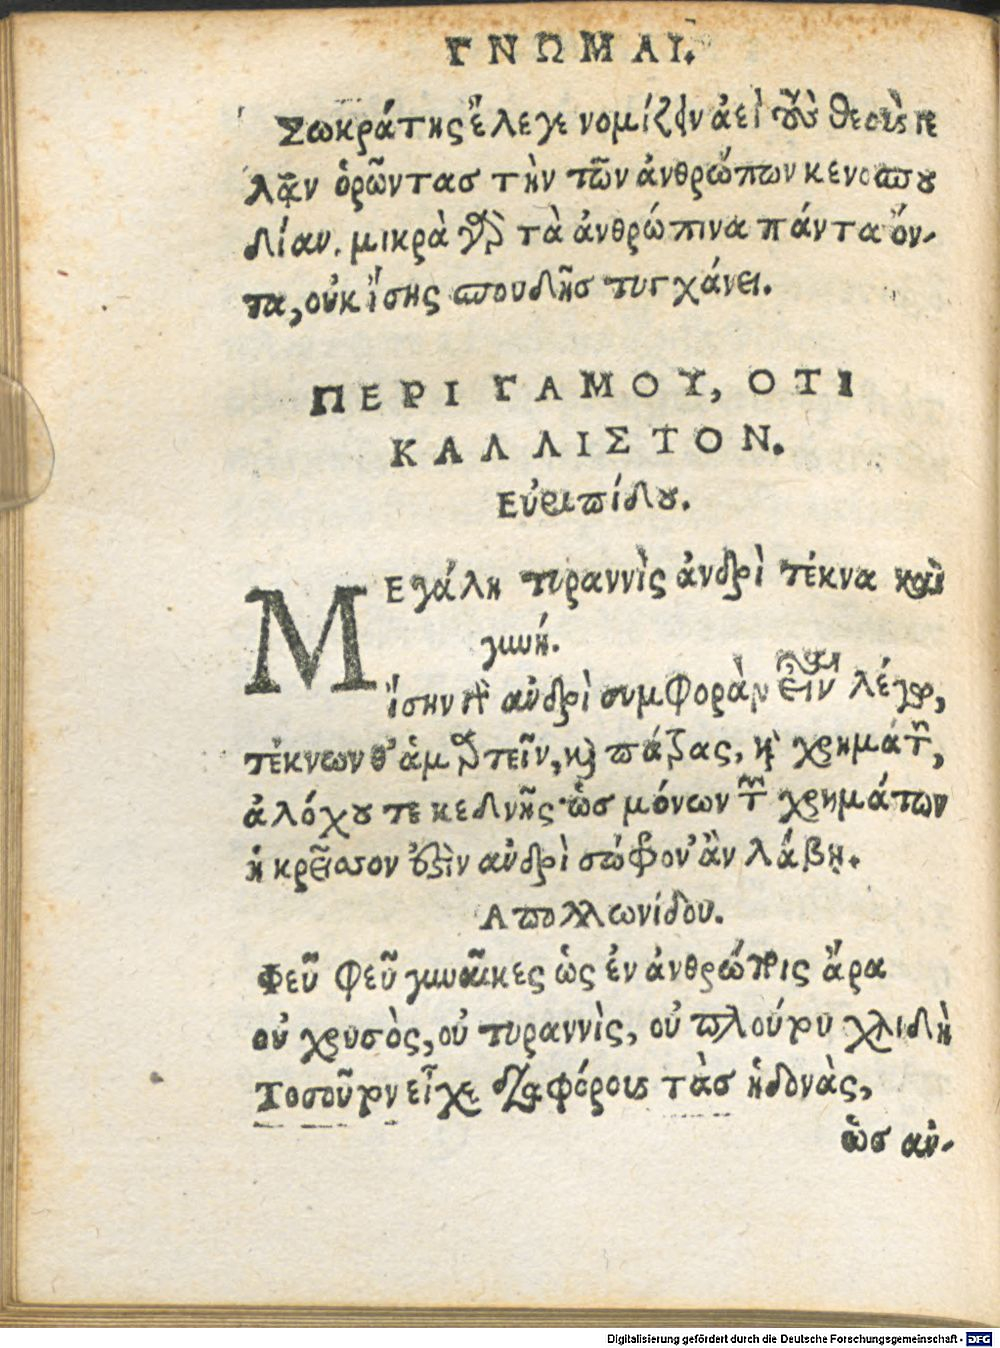 ΓΝΩΜΑΙ.
Σωκράτης ἔλεγε νομίζειν ἀεὶ τοὺς θεοὺς γε
λᾷν ὁρῶντας τὴν τῶν ἀνθρώπων κενοσπου
δίαν. μικρὰ γὰρ τὰ ἀνθρώπινα πάντα ὄν-
τα, οὐκ ἴσης σπουδῆς τυγχάνει.
ΠΕΡΙ ΓΑΜΟΥ, ΟΤΙ
ΚΑΛΛΙΣΤΟΝ.
Εὐριπίδου.
ΜΕγάλη τυραννὶς ἀνδρὶ τέκνα καὶ
γυνή.
ἴσην γὰρ ἀνδρὶ συμφορὰν εἶναι λέγω,
τέκνων θ’ ἁμαρτεῖν, καὶ πάτρας, καὶ χρημάτων,
ἀλόχου τε κεδνῆς· ὡς μόνων τῶν χρημάτων
ἢ κρεῖσσον ἐστὶν ἀνδρὶ σώφρον’ ἂν λάβῃ.
Απολλωνίδου.
Φεῦ φεῦ γυναῖκες ὡς ἐν ἀνθρώποις ἄρα
οὐ χρυσὸς, οὐ τυραννὶς, οὐ πλούτου χλιδὴ
Τοσοῦτον εἶχε διαφόρους τὰς ἡδονὰς,
ὡς ἀν-
Digitalisierung gefördert durch die Deutsche Forschungsgemeinschaft - DFG